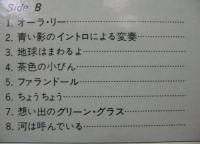 Side B
1. オーラ・リー
2. 青い影のイントロによる変奏
3. 地球はまわるよ
4. 茶色の小びん
5. ファランドール
6. ちょうちょう
7. 想い出のグリーン・グラス
8. 河は呼んでいる